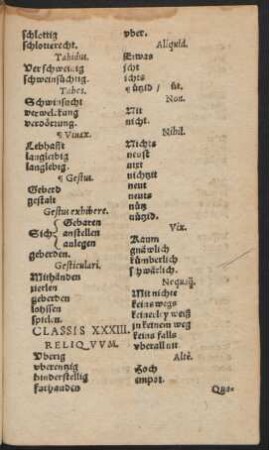 schlottig
schlotterecht.
Tabidus.
Verschweinig
schweinsüchtig.
Tabes.
Schwinsucht
verwelckung
verdörrung.
¶ Vivax.
Lebhafft
langlebig
langlebig.
¶ Gestus.
Geberd
gestalt
Gestus exhibere.
Sich
Gebaren
anstellen
anlegen
geberden.
Gesticulari.
Mithänden
zierlen
geberden
spielen.
CLASSIS XXXIII.
RELIQVVM.
Vberig
hinderstellig
fürhanden
vber.
Aliquid.
Etwas
icht
ichts
¶ ützid / üt.
Non.
Nit
nicht.
Nihil.
Nichts
neüst
nixt
nichtzit
neut
neuts
nütz
nützid.
Vix.
Kaum
gnäwlich
kümberlich
schwärlich.
Nequaq̃.
Mit nichte
keins wegs
keinerley weiß
in keinem weg
keins falls
vberall nit
Altè.
Hoch
empor.
Quæ-